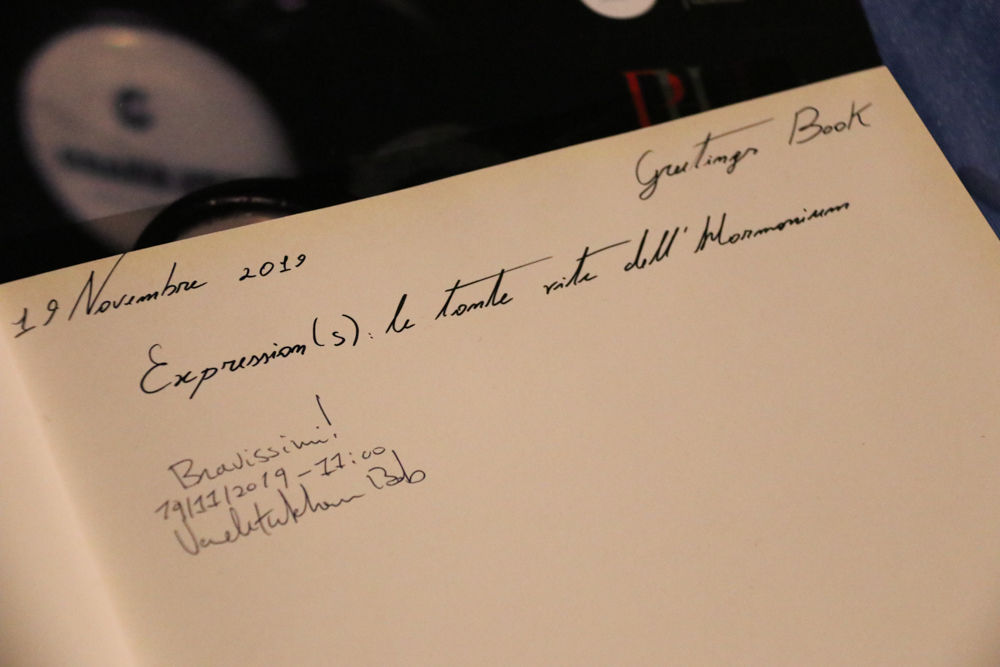 Greetings Book
19 Novembre 2019
Expression(s): le tante vite dell'Harmonium
Bravissimi!
19/11/2019 - 11:00
Bob